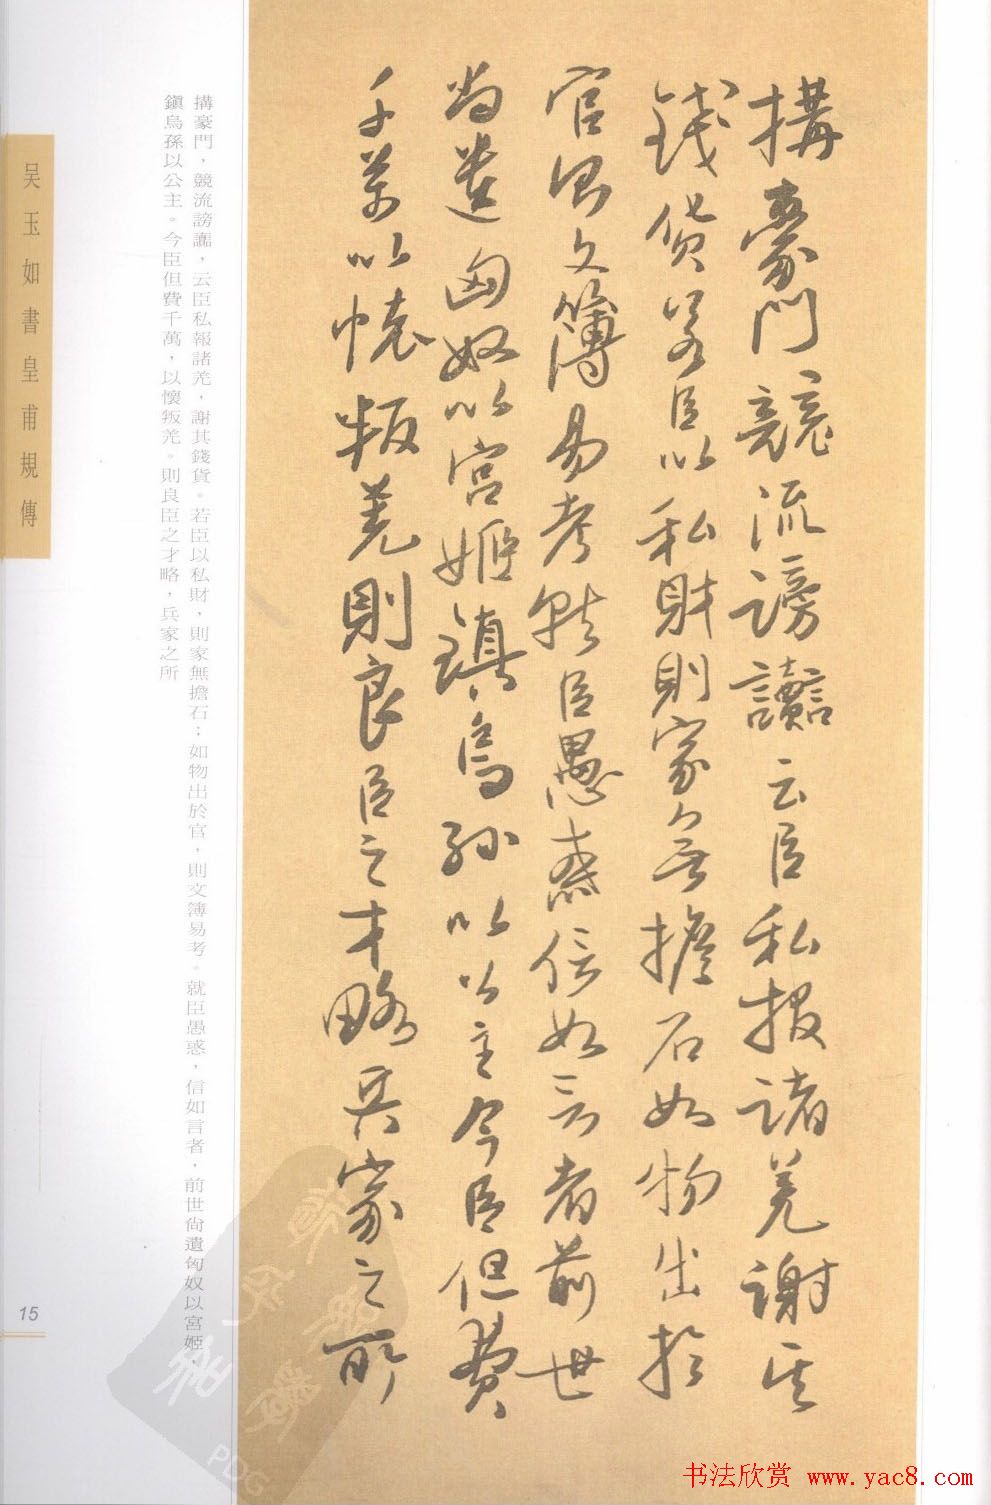 搆豪門競流謗讟云臣私報諸羌謝其
錢貨若臣以私財則家無擔石如物出於
官則文簿易考就臣愚惑信如言者前世
尚遺匈奴以宮姬鎮烏孫以公主今臣但費
千萬以懷叛羌則良臣之才略兵家之所
搆豪門，競流謗讟，云臣私報諸羌，謝其錢貨。若臣以私財，則家無擔石；如物出於官，則文簿易考。就臣愚惑，信如言者，前世尚遺匈奴以宮姬，
鎮烏孫以公主。今臣但費千萬，以懷叛羌。則良臣之才略，兵家之所
吴玉如書皇甫規傳
15
PDG
书法欣赏 www.yac8.com